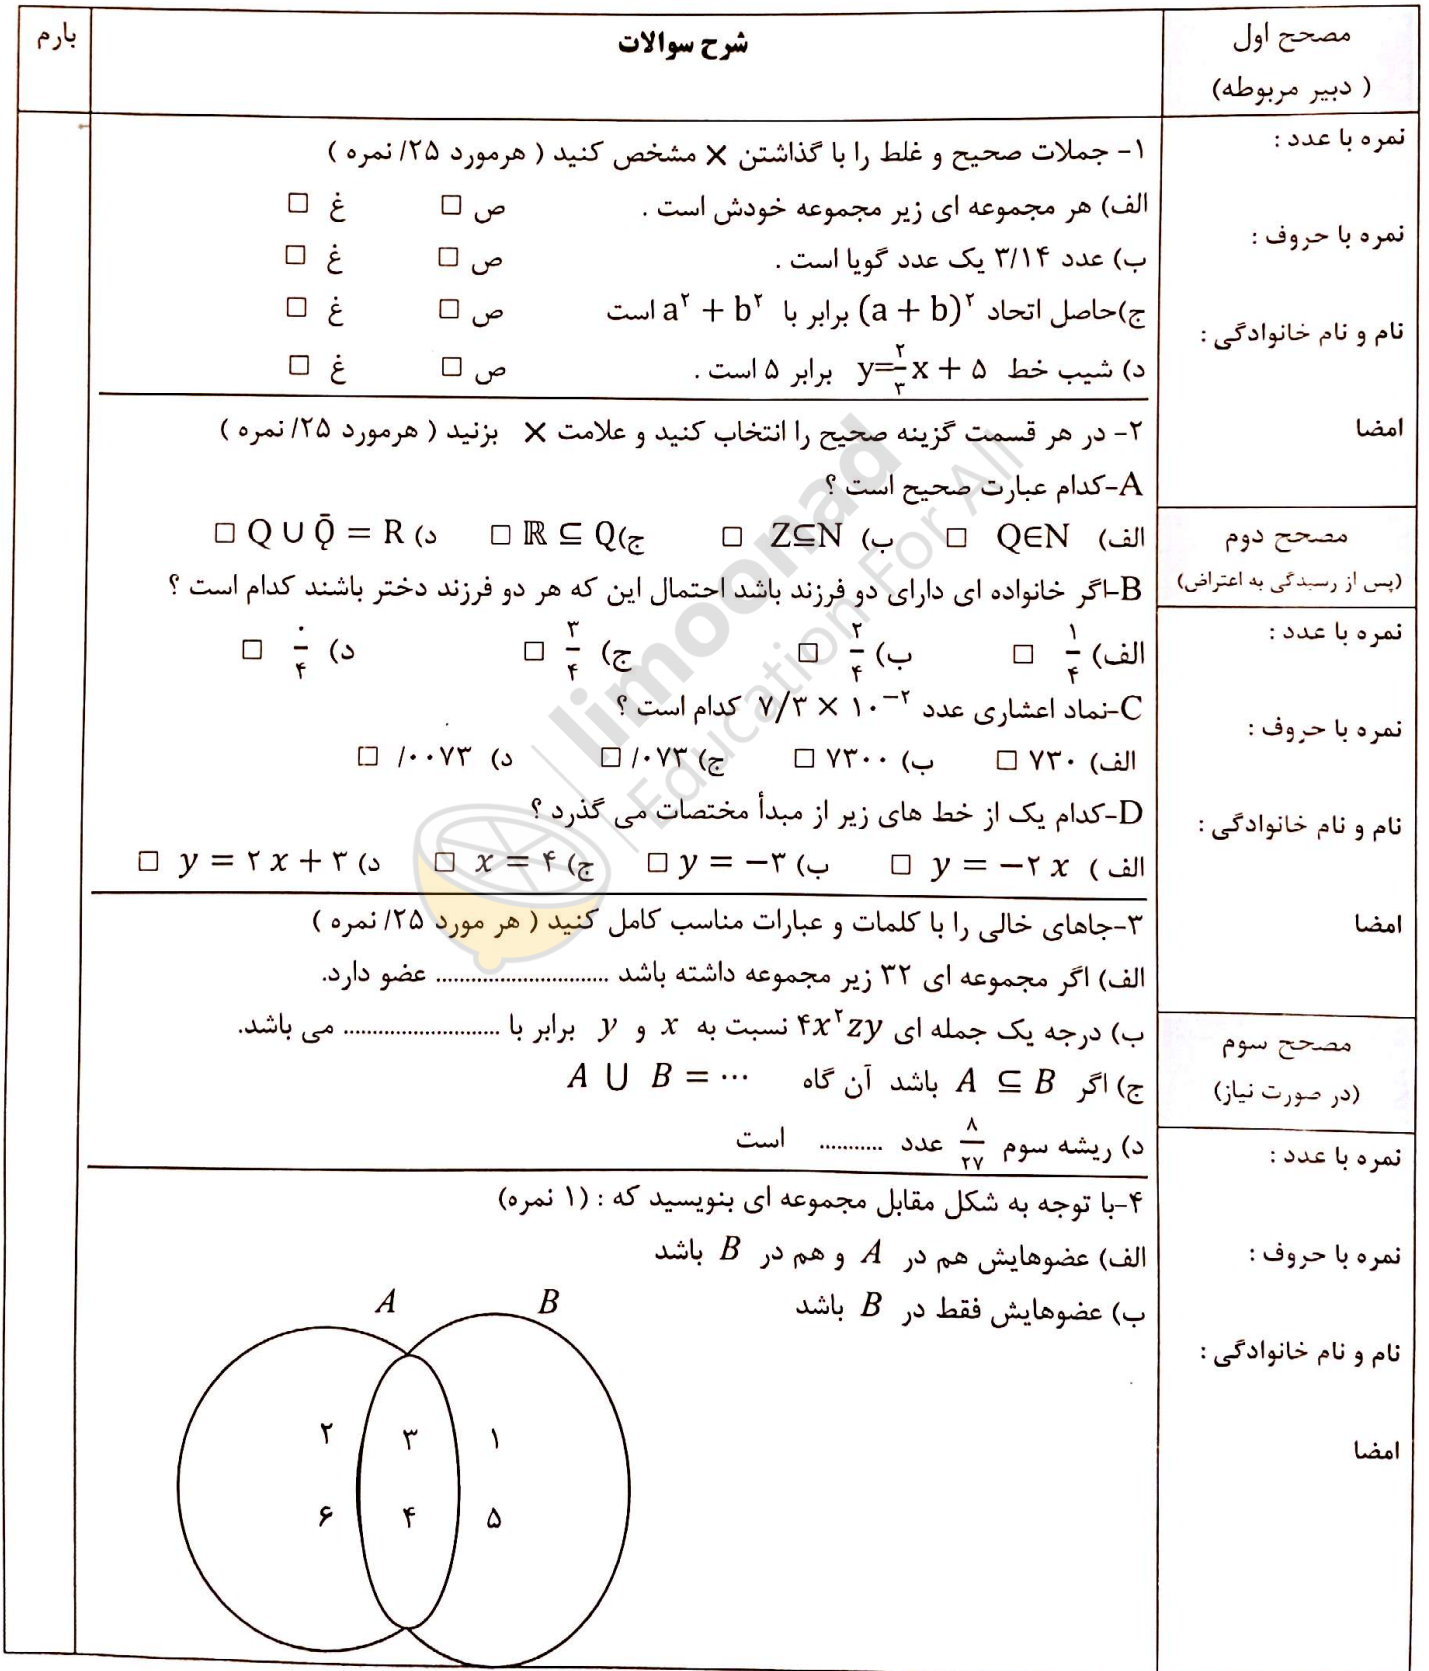 مصحح اول
( دبیر مربوطه)
شرح سوالات
بارم
نمره با عدد :
نمره با حروف :
نام و نام خانوادگی :
امضا
مصحح دوم
(پس از رسیدگی به اعتراض)
نمره با عدد :
نمره با حروف :
نام و نام خانوادگی :
امضا
مصحح سوم
(در صورت نیاز)
نمره با عدد :
نمره با حروف :
نام و نام خانوادگی :
امضا
۱- جملات صحیح و غلط را با گذاشتن × مشخص کنید ( هرمورد ۲۵/ نمره )
الف) هر مجموعه ای زیر مجموعه خودش است . ص □ غ □
ب) عدد ۳/۱۴ یک عدد گویا است . ص □ غ □
ج)حاصل اتحاد (a + b)² برابر با a² + b² است ص □ غ □
د) شیب خط y=۲/۳x + ۵ برابر ۵ است . ص □ غ □
۲- در هر قسمت گزینه صحیح را انتخاب کنید و علامت × بزنید ( هرمورد ۲۵/ نمره )
A-کدام عبارت صحیح است ؟
الف) Q∈N □ ب) Z⊆N □ ج) ℝ ⊆ Q □ د) Q ∪ Q̄ = R □
B-اگر خانواده ای دارای دو فرزند باشد احتمال این که هر دو فرزند دختر باشند کدام است ؟
الف) ۱/۴ □ ب) ۲/۴ □ ج) ۳/۴ □ د) ۰/۴ □
C-نماد اعشاری عدد ۷/۳ × ۱۰⁻² کدام است ؟
الف) ۷۳۰ □ ب) ۷۳۰۰ □ ج) ۰۷۳/ □ د) ۰۰۷۳/ □
D-کدام یک از خط های زیر از مبدأ مختصات می گذرد ؟
الف ) y = −۲ x □ ب) y = −۳ □ ج) x = ۴ □ د) y = ۲ x + ۳ □
۳-جاهای خالی را با کلمات و عبارات مناسب کامل کنید ( هر مورد ۲۵/ نمره )
الف) اگر مجموعه ای ۳۲ زیر مجموعه داشته باشد .............................. عضو دارد.
ب) درجه یک جمله ای ۴x²zy نسبت به x و y برابر با ........................... می باشد.
ج) اگر A ⊆ B باشد آن گاه A ∪ B = ⋯
د) ریشه سوم ۸/۲۷ عدد ........... است
۴-با توجه به شکل مقابل مجموعه ای بنویسید که : (۱ نمره)
الف) عضوهایش هم در A و هم در B باشد
ب) عضوهایش فقط در B باشد
A B
۲ ۳ ۱
۶ ۴ ۵
limoonad
Education For All